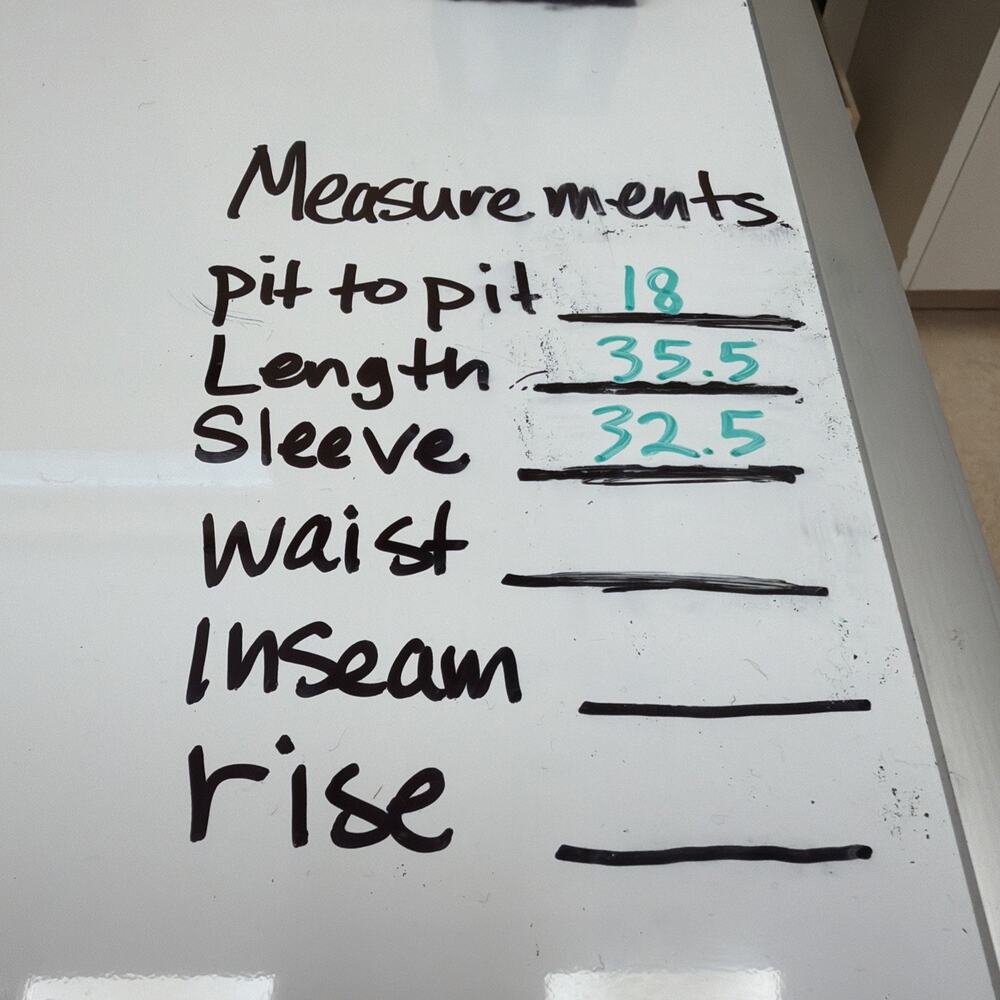 Measurements
pit to pit 18
Length 35.5
Sleeve 32.5
waist
Inseam
rise